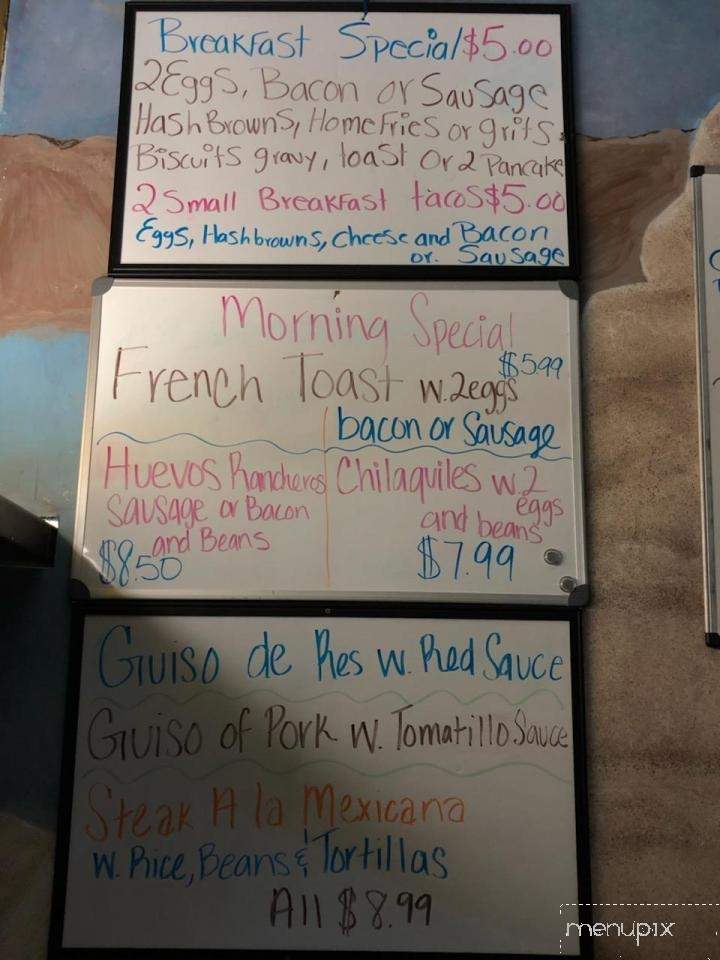 Breakfast Special $5.00
2 Eggs, Bacon or Sausage
Hash Browns, Home Fries or grits.
Biscuits gravy, toast Or 2 Pancake
2 Small Breakfast tacos $5.00
Eggs, Hashbrowns, cheese and Bacon
or. Sausage
Morning Special
$5.99
French Toast w. 2 eggs
bacon or Sausage
Huevos Rancheros
Sausage or Bacon
and Beans
$8.50
Chilaquiles w. 2
eggs
and beans
$7.99
Guiso de Res w. Red Sauce
Guiso of Pork w. Tomatillo Sauce
Steak A la Mexicana
w. Rice, Beans & Tortillas
All $8.99
menupix